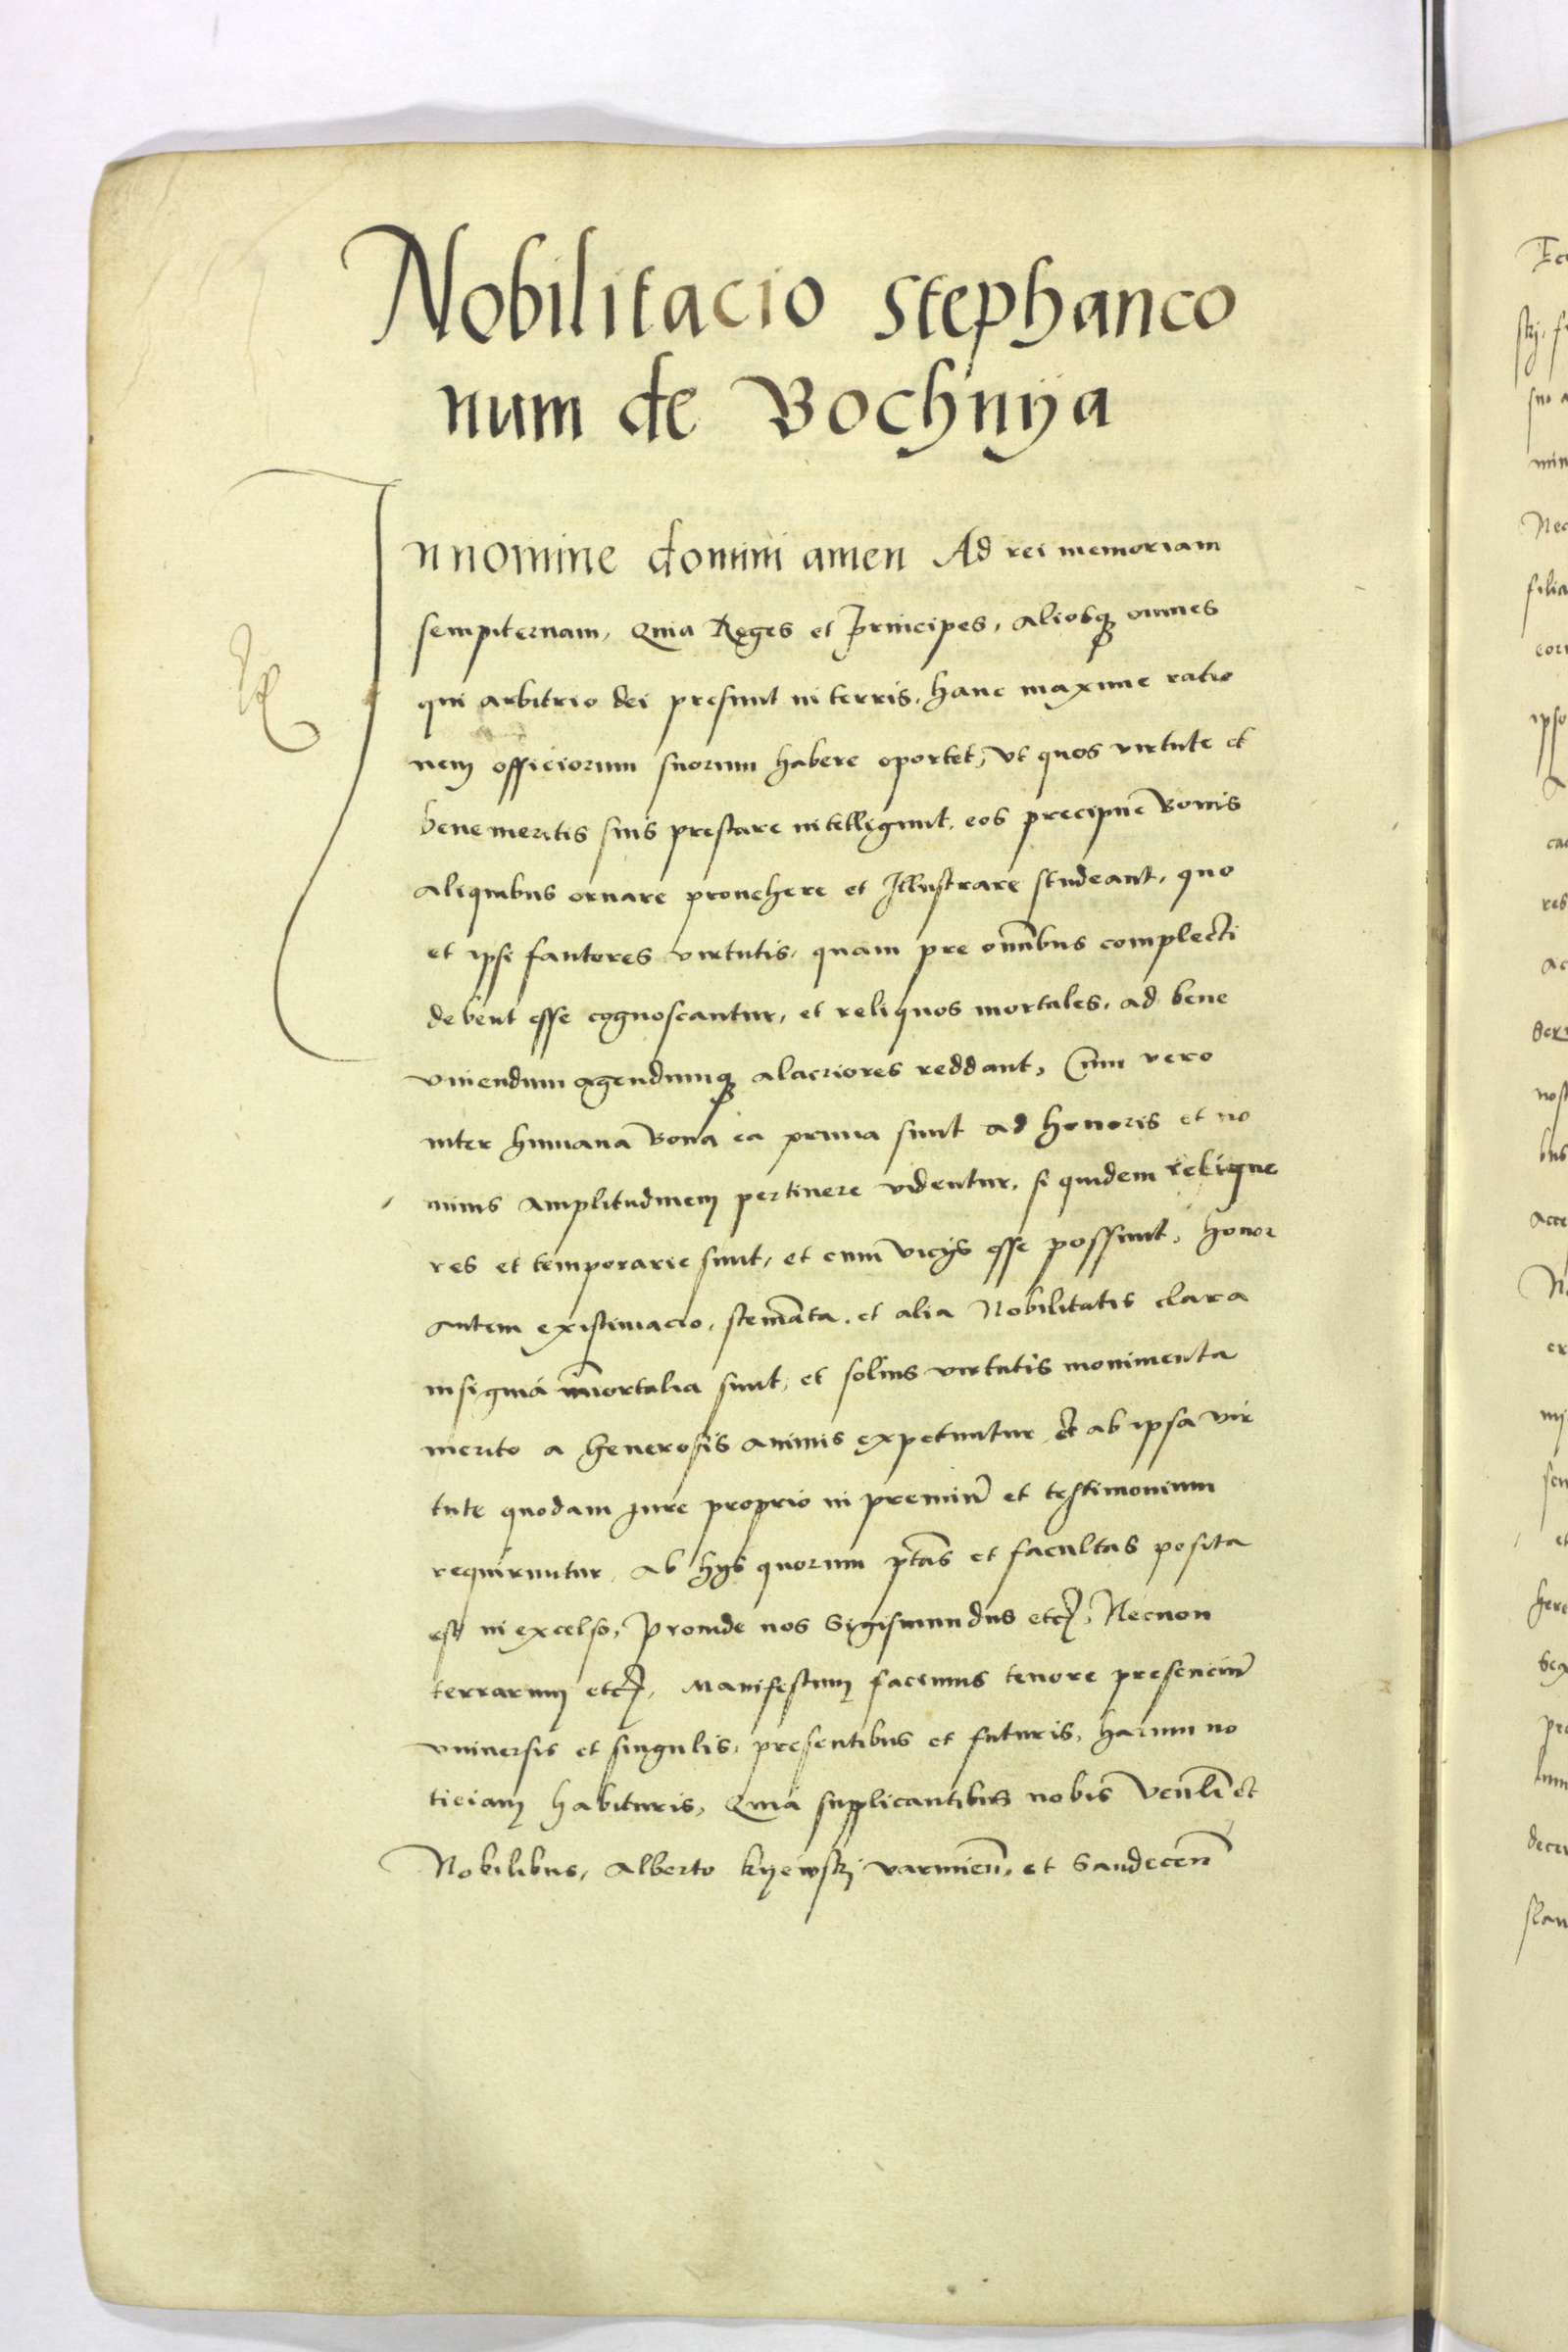 Nobilitacio Stephanco
num de Bochnÿa
In nomine domini amen Ad rei memoriam
sempiternam, Quia Reges et Principes, aliosq omnes
qui arbitrio dei presunt in terris, hanc maxime ratio
nem officiorum suorum habere oportet, vt quos virtute et
bene meritis suis prestare intelligunt, eos precipue Bonis
aliquibus ornare prouehere et Illustrare studeant, quo
et ipsi fautores virtutis, quam pre omībus complecti
debent esse cognoscantur, et reliquos mortales, ad bene
viuendum agendumq alacriores reddant, Cum vero
inter humana Bona ea prima sunt ad honoris et no
minis amplitudinem pertinere videntur, si quidem relique
res et temporarie sunt, et cum vicijs esse possunt, honor
autem existimacio, stemāta, et alia Nobilitatis clara
insignia īmortalia sunt, et solius virtutis monimenta
merito a Generosis animis expetuntur et ab ipsa vir
tute quodam Jure proprio in premiū et testimonium
requiruntur, Ab hijs quorum ptās et facultas posita
est in excelso, Proinde nos Sigismundus etc, Necnon
terrarum etc, Manifestum facimus tenore presenciū
vniuersis et singulis, presentibus et futuris, harum no
ticiam habituris, Quia supplicantibus nobis Venlī et
Nobilibus, Alberto kÿewskj varmieñ, et Sandeceñ